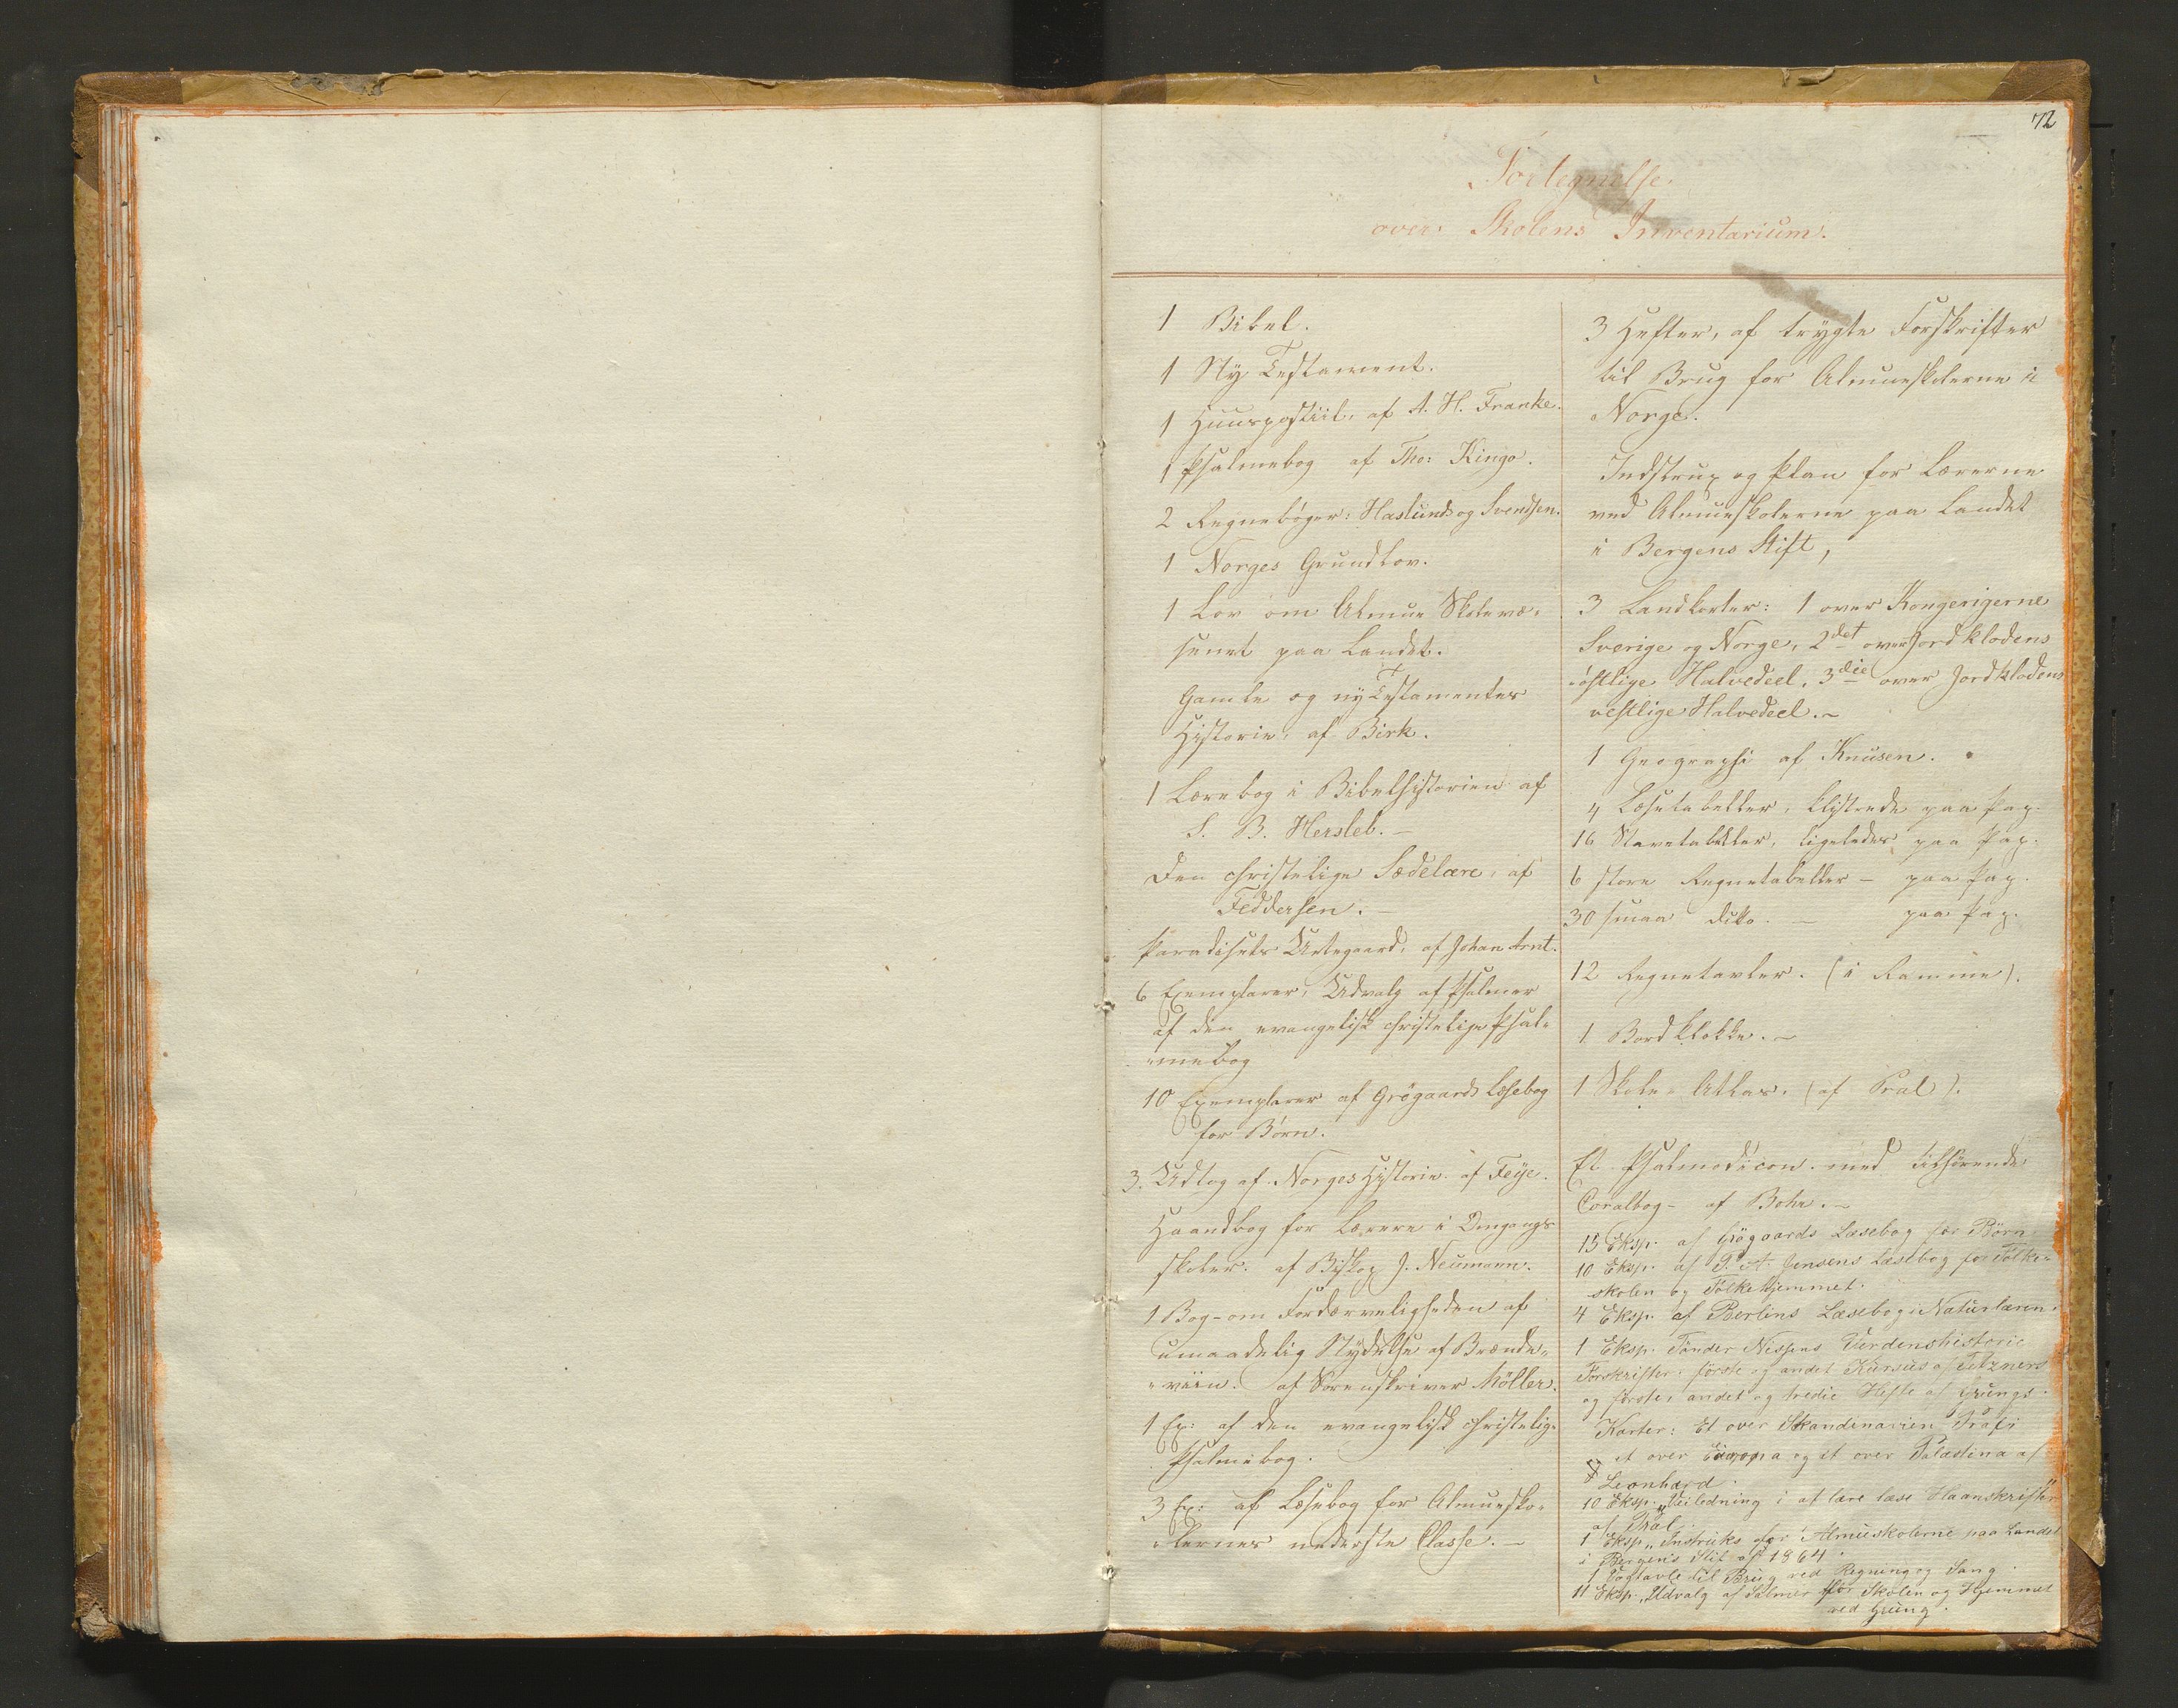 72
Fortegnelse
over Skolens Inventarium.
1 Bibel.
1 Ny Testament.
1 Huuspostiil, af A. H. Franke.
1 Psalmebog af Tho: Kingo.
2 Regnebøger: Haslunds og Svendsen.
1 Norges Grundlov.
1 Lov om Almue Skolevæ-
senet paa Landet.
Gamle og ny Testamentes
Historie, af Birk.
1 Lærebog i Bibelhistorien af
S. B. Hersleb. –
Den christelige Sædelære, af
Feddersen. –
Paradisets Urtegaard, af Johan Arnt.
6 Exemplarer, Udvalg af Psalmer
af den evangelisk christelige Psal-
-mebog
10 Exemplarer af Grøgaards Læsebog
for Børn.
3. Udtog af Norges Historie af Feije.
Haandbog for Lærere i Omgangs
skoler. af Biskop J. Neumann.
1 Bog-om Fordærveligheden af
umaadelig Nydelse af Brænde-
-viin. af Sorenskriver Möller.
1 Ex: af den evangelisk christelige
Psalmebog.
3 Ex: af Læsebog for Almuesko-
-lernes nederste Classe. –
3 Hefter, af trygte Forskrifter
til Brug for Almueskolerne i
Norge.
Indstrux og Plan for Lærerne
ved Almueskolerne paa Landet
i Bergens Stift,
3 Landkorter: 1 over Kongerigerne
Sverige og Norge, 2det over Jordklodens
østlige Halvedeel, 3die over Jordklodens
vestlige Halvedeel. –
1 Geographi af Knüsen.
4 Læsetabeller, klistrede paa Pap.
16 Stavetabeller, ligeledes paa Pap.
6 store Regnetabeller – paa Pap.
30 smaa dito. – paa Pap.
12 Regnetavler. (i Ramme).
1 Bordklokke. –
1 Skole-Atlas. (af Pral).
Et Psalmodicon med tilhørende
Coralbog - af Bohr. –
15 Eksp. af Grögaards Læsebog for Börn
10 Eksp. af P. A. Jensens Læsebog for Folke-
skolen og Folkehjemmet.
4 Eksp. af Berlins Læsebog i Naturlæren.
1 Eksp. Tönder Nissens Verdenshistorie
Forskrifter: förste og andet Kursus af
og förste, andet og tredie Hefte af Grüngs.
Karter: Et over Skandinavien
et over Europa og et over Palæstina af
Leonhard
10 Eksp. „Veiledning i at lære læse Haanskrift"
af Pral.
1 Eksp. „Instruks for Almueskolerne paa Landet
i Bergens Stit af 1864.
1 Vægtavle til Brug ved Regning og Sang.
11 Eksp. „Udvalg af Salmer for Skolen og Hjemmet
ved Grüng.